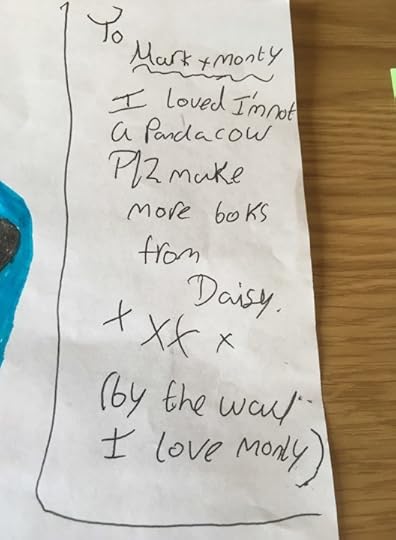 To
Mark + monty
I loved I'm not
a Pandacow
Plz make
more books
from
Daisy.
+ X X x
(by the way..
I love monty)